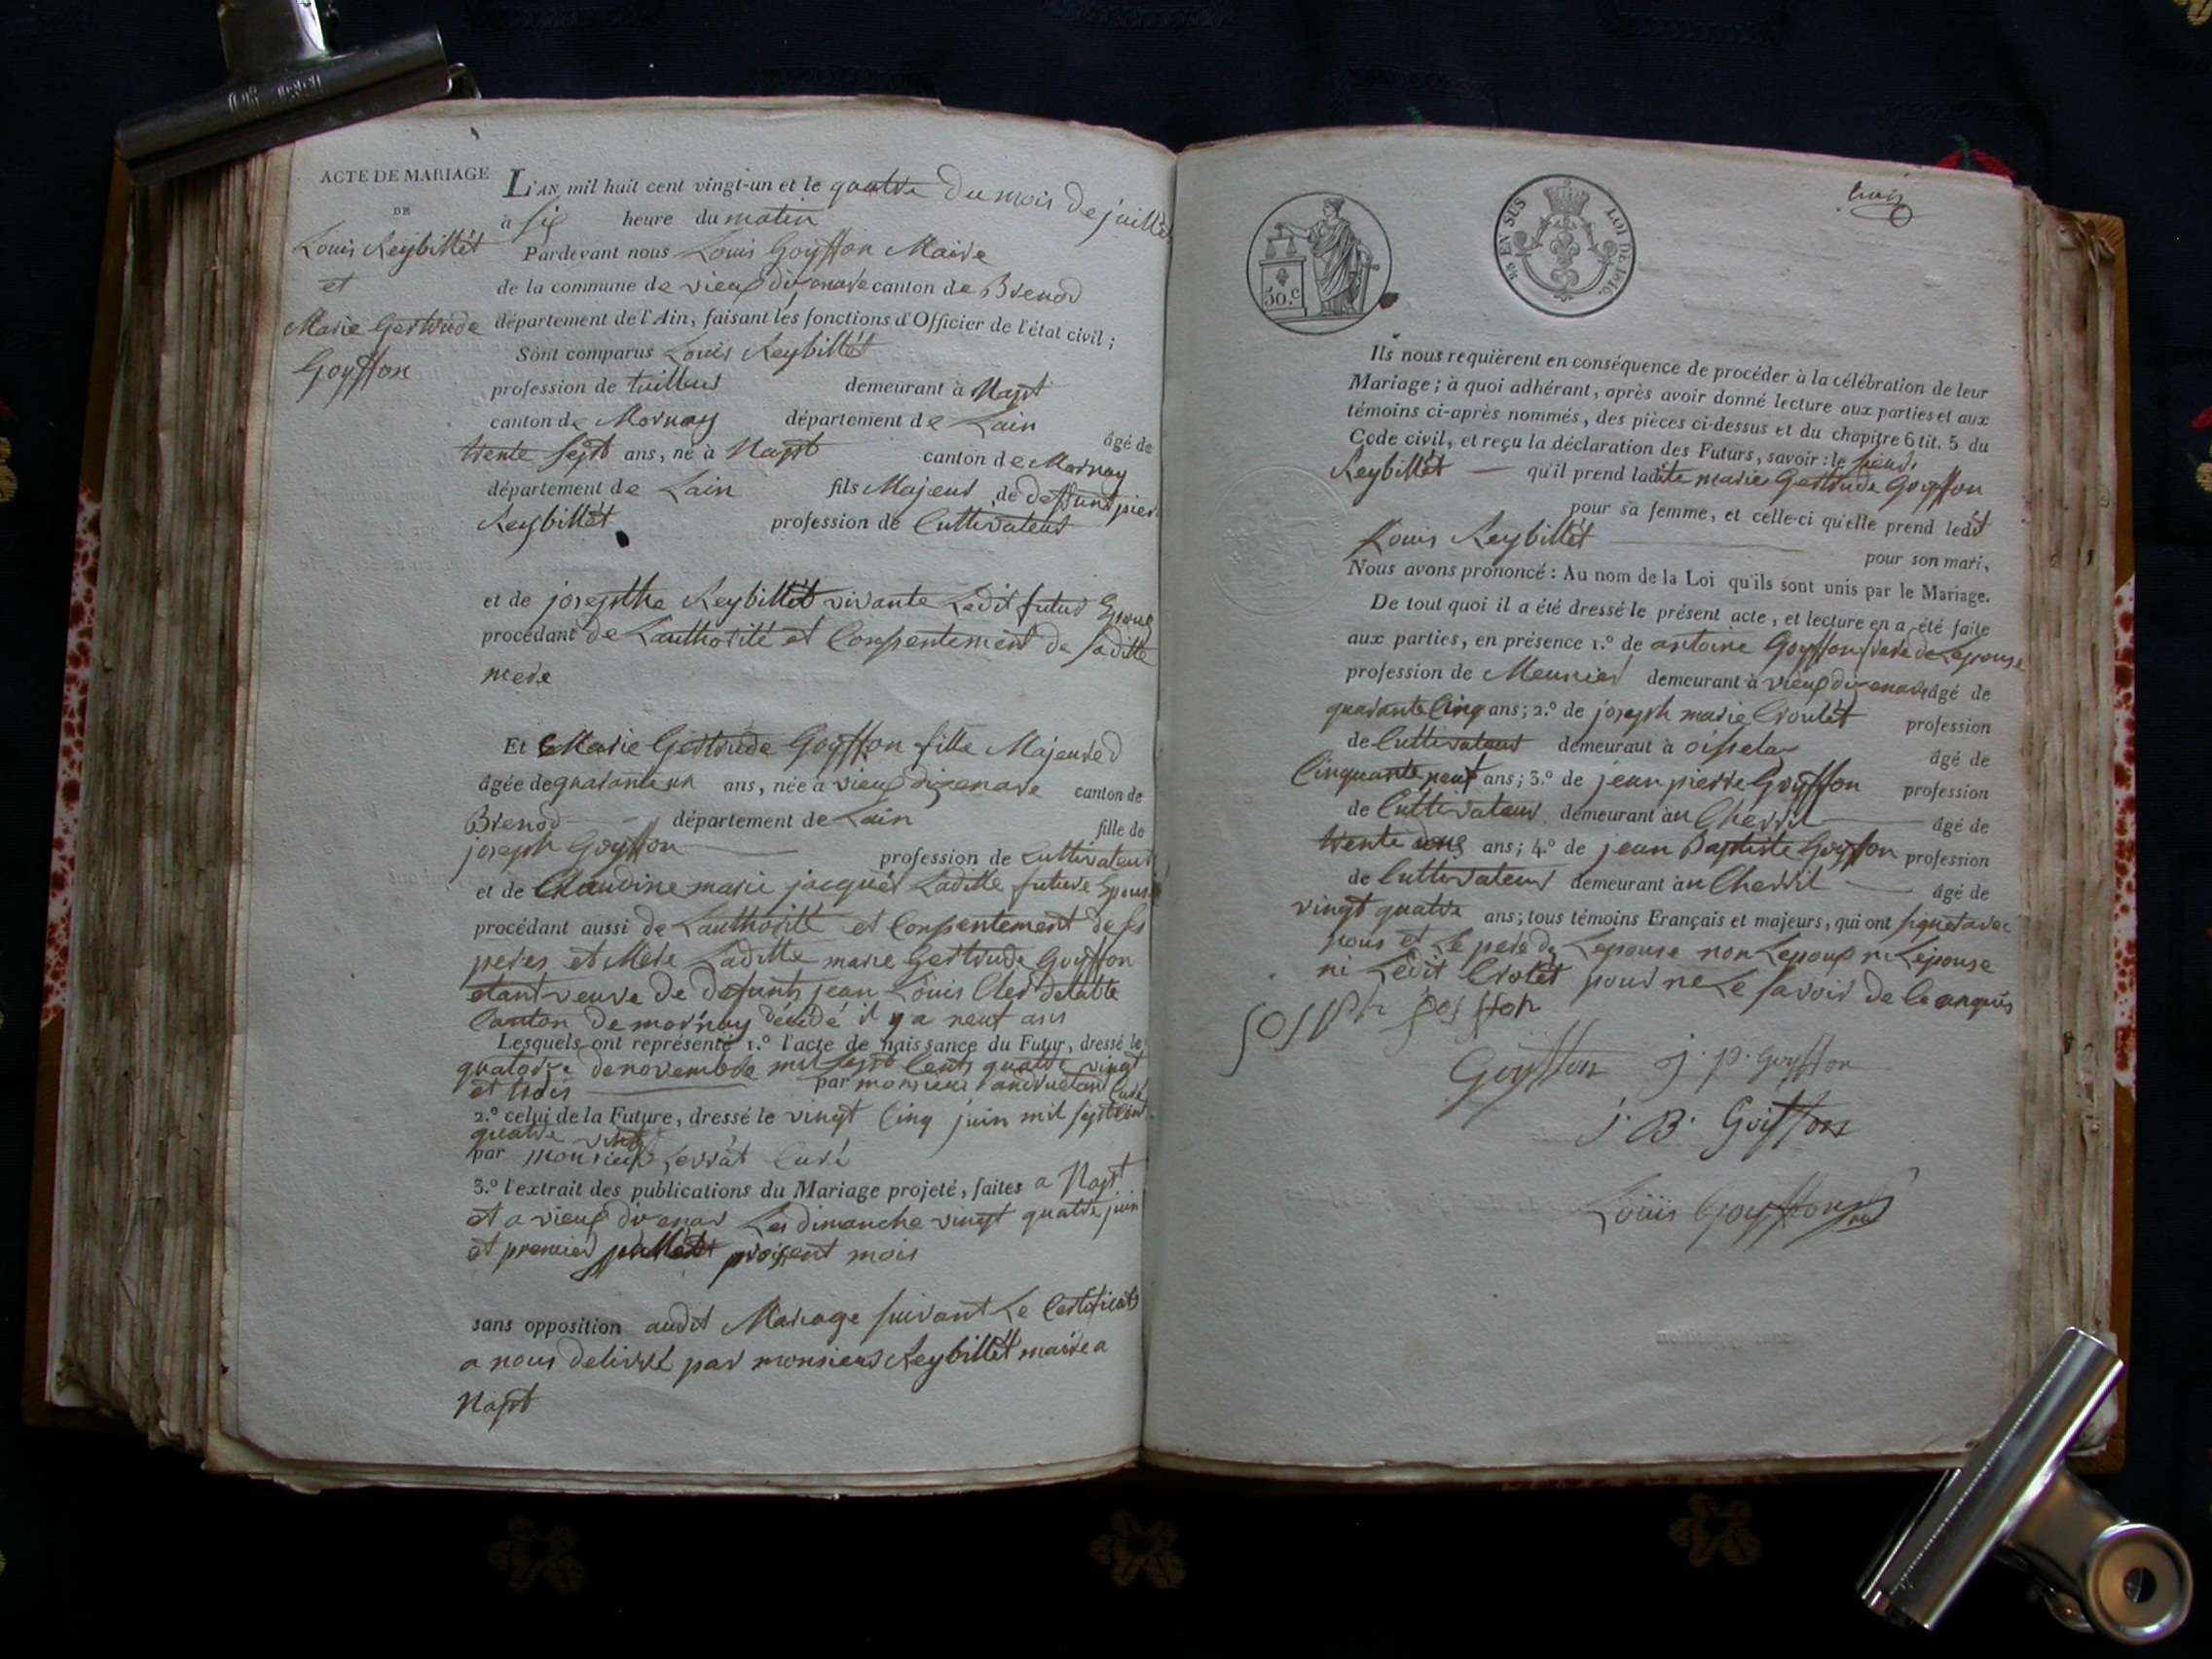 ACTE DE MARIAGE
DE
Louis Reybillét
et
Marie Gertrude
Goyffon
L'AN mil huit cent vingt-un et le quatre du mois de juillet
à six heure du matin
Pardevant nous Louis Goyffon Maire
de la commune de vieux dizenave canton de Brenod
département de l'Ain, faisant les fonctions d'Officier de l'état civil;
Sont comparus Louis Reybillét
profession de tailleur demeurant à Napt
canton de Mornay département de Lain âgé de
trente sept ans, né à Napt canton de Mornay
département de Lain fils Majeur de deffunt pier
Reybillét profession de Cultivateur
et de josepthe Reybillét vivante Ledit futur Epoux
procédant de Lauthorité et Conssentement de sa ditte
mere
Et Marie Gertrude Goyffon fille Majeure
âgée de quarante un ans, née à vieux dizenave canton de
Brenod département de Lain fille de
joseph Goyffon profession de Cultivateur
et de Claudine marie jacquét Laditte future Epouse
procédant aussi de Lauthorité et Conssentement de ses
peres et Mere Laditte marie Gertrude Goyffon
etant veuve de defunts jean Louis Cler
Canton de mornay décédé il y a neuf ans
Lesquels ont représenté 1.º l'acte de naissance du Futur, dressé le
quatorze denovembre mil sept Cents quatre vingt
et trois par monsieur Curé
2.º celui de la Future, dressé le vingt Cinq juin mil sept Cent
quatre vingt
par monsieur Curé
3.º l'extrait des publications du Mariage projeté, faites a Napt
et a vieux dizenav Les dimanche vingt quatre juin
et premier juillet present mois
sans opposition audit Mariage suivant Le Certificat
a nous delivré par monsieur Reybillét maire a
Napt
50.c
EN SUS
LOI DE 1816.
trois
Ils nous requièrent en conséquence de procéder à la célébration de leur
Mariage; à quoi adhérant, après avoir donné lecture aux parties et aux
témoins ci-après nommés, des pièces ci-dessus et du chapitre 6 tit. 5 du
Code civil, et reçu la déclaration des Futurs, savoir: le sieur
Reybillét qu'il prend ladite marie Gertrude Goyffon
pour sa femme, et celle-ci qu'elle prend ledit
Louis Reybillét pour son mari,
Nous avons prononcé: Au nom de la Loi qu'ils sont unis par le Mariage.
De tout quoi il a été dressé le présent acte, et lecture en a été faite
aux parties, en présence 1.º de antoine Goyffon frere de Lepouse
profession de Meunier demeurant à vieux dizenave âgé de
quarante Cinq ans; 2.º de joseph marie Croulét profession
de Cultivateur demeurant à oisselaz âgé de
Cinquante neuf ans; 3.º de jean pierre Goyffon profession
de Cultivateur demeurant au Cherril âgé de
trente ans; 4.º de jean Baptiste Goyffon profession
de Cultivateur demeurant au Cherril âgé de
vingt quatre ans; tous témoins Français et majeurs, qui ont signet avec
nous et Le pere de Lepouse non Lepoux ni Lépouse
ni Ledit Crolét pour ne Le savoir de Ce enquis
joseph goiffon
Goyffon j. p. Goyffon
j. B. Goiffon
Louis Goyffon